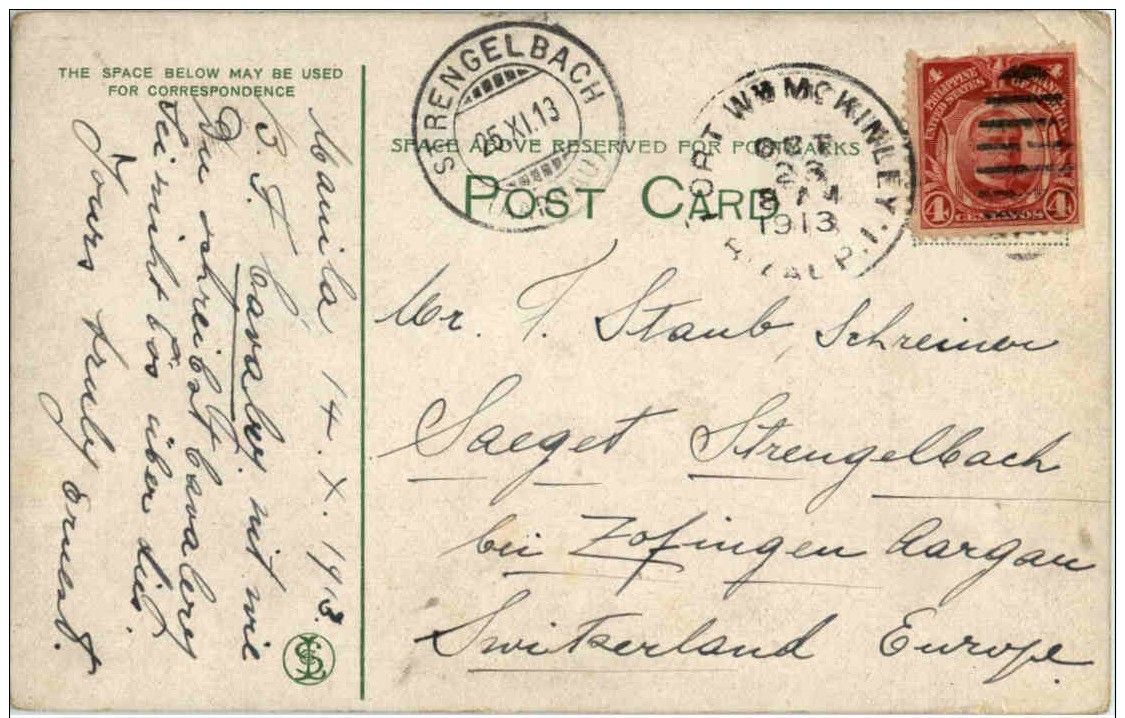 THE SPACE BELOW MAY BE USED
FOR CORRESPONDENCE
Manila 14. X. 1913.
P. S. Cavalry. nit wie
Du schreibst Cavalery
Sei nicht bös über dies.
Yours truly Ernest.
STRENGELBACH
25.XI.13
(AARGAU)
SPACE ABOVE RESERVED FOR POSTMARKS
POST CARD
FORT WM MCKINLEY,
RIZAL P.I.
OCT
1913
4 4
PHILIPPINE
UNITED STATES
4 CENTAVOS 4
Mr. F. Staub, Schreiner
Saeget Strengelbach
bei Zofingen Aargau
Switserland Europe.